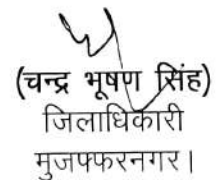 (चन्द्र भूषण सिंह)
जिलाधिकारी
मुजफ्फरनगर।